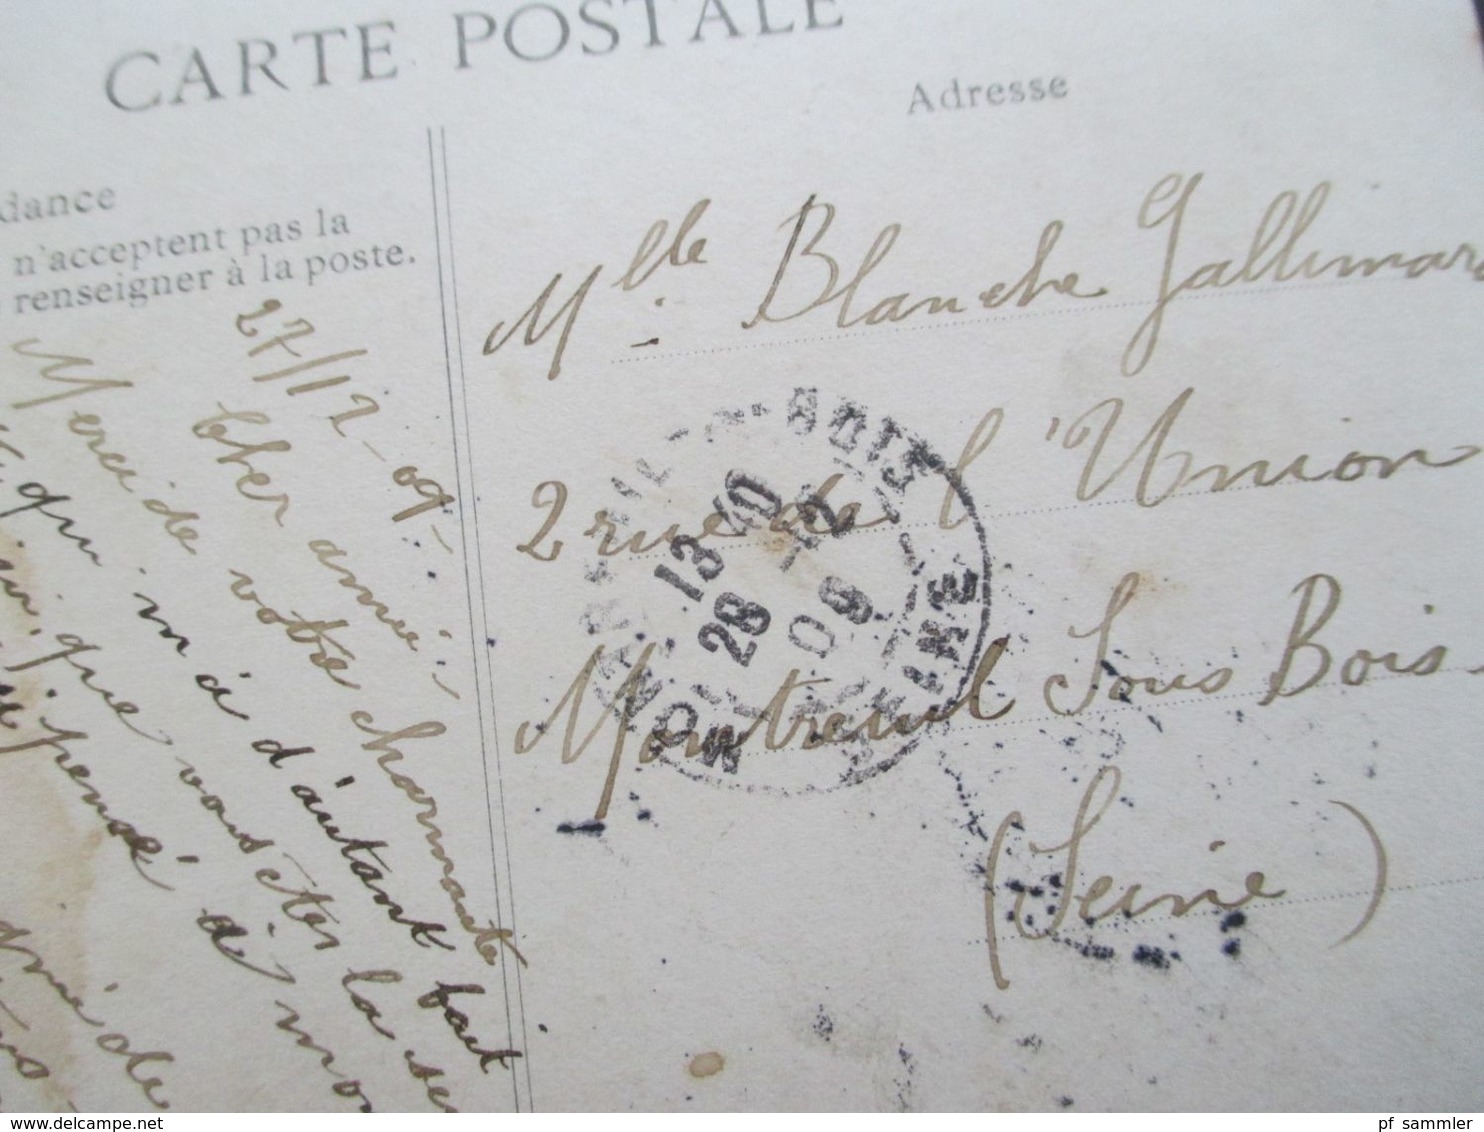 CARTE POSTALE
Adresse
dance
n'acceptent pas la
renseigner à la poste.
27/12-09-
Cher amie
Merci de votre charmante
qui m'a d'autant fait
que vous êtes la se
pensé à mon
amie de
Mlle. Blanche Gallimar
2 rue de l'Union
Montreuil Sous Bois
(Seine)
MONTREUIL-S-BOIS
13 40
28 -12
09
SEINE
delcampe.net
pf_sammler